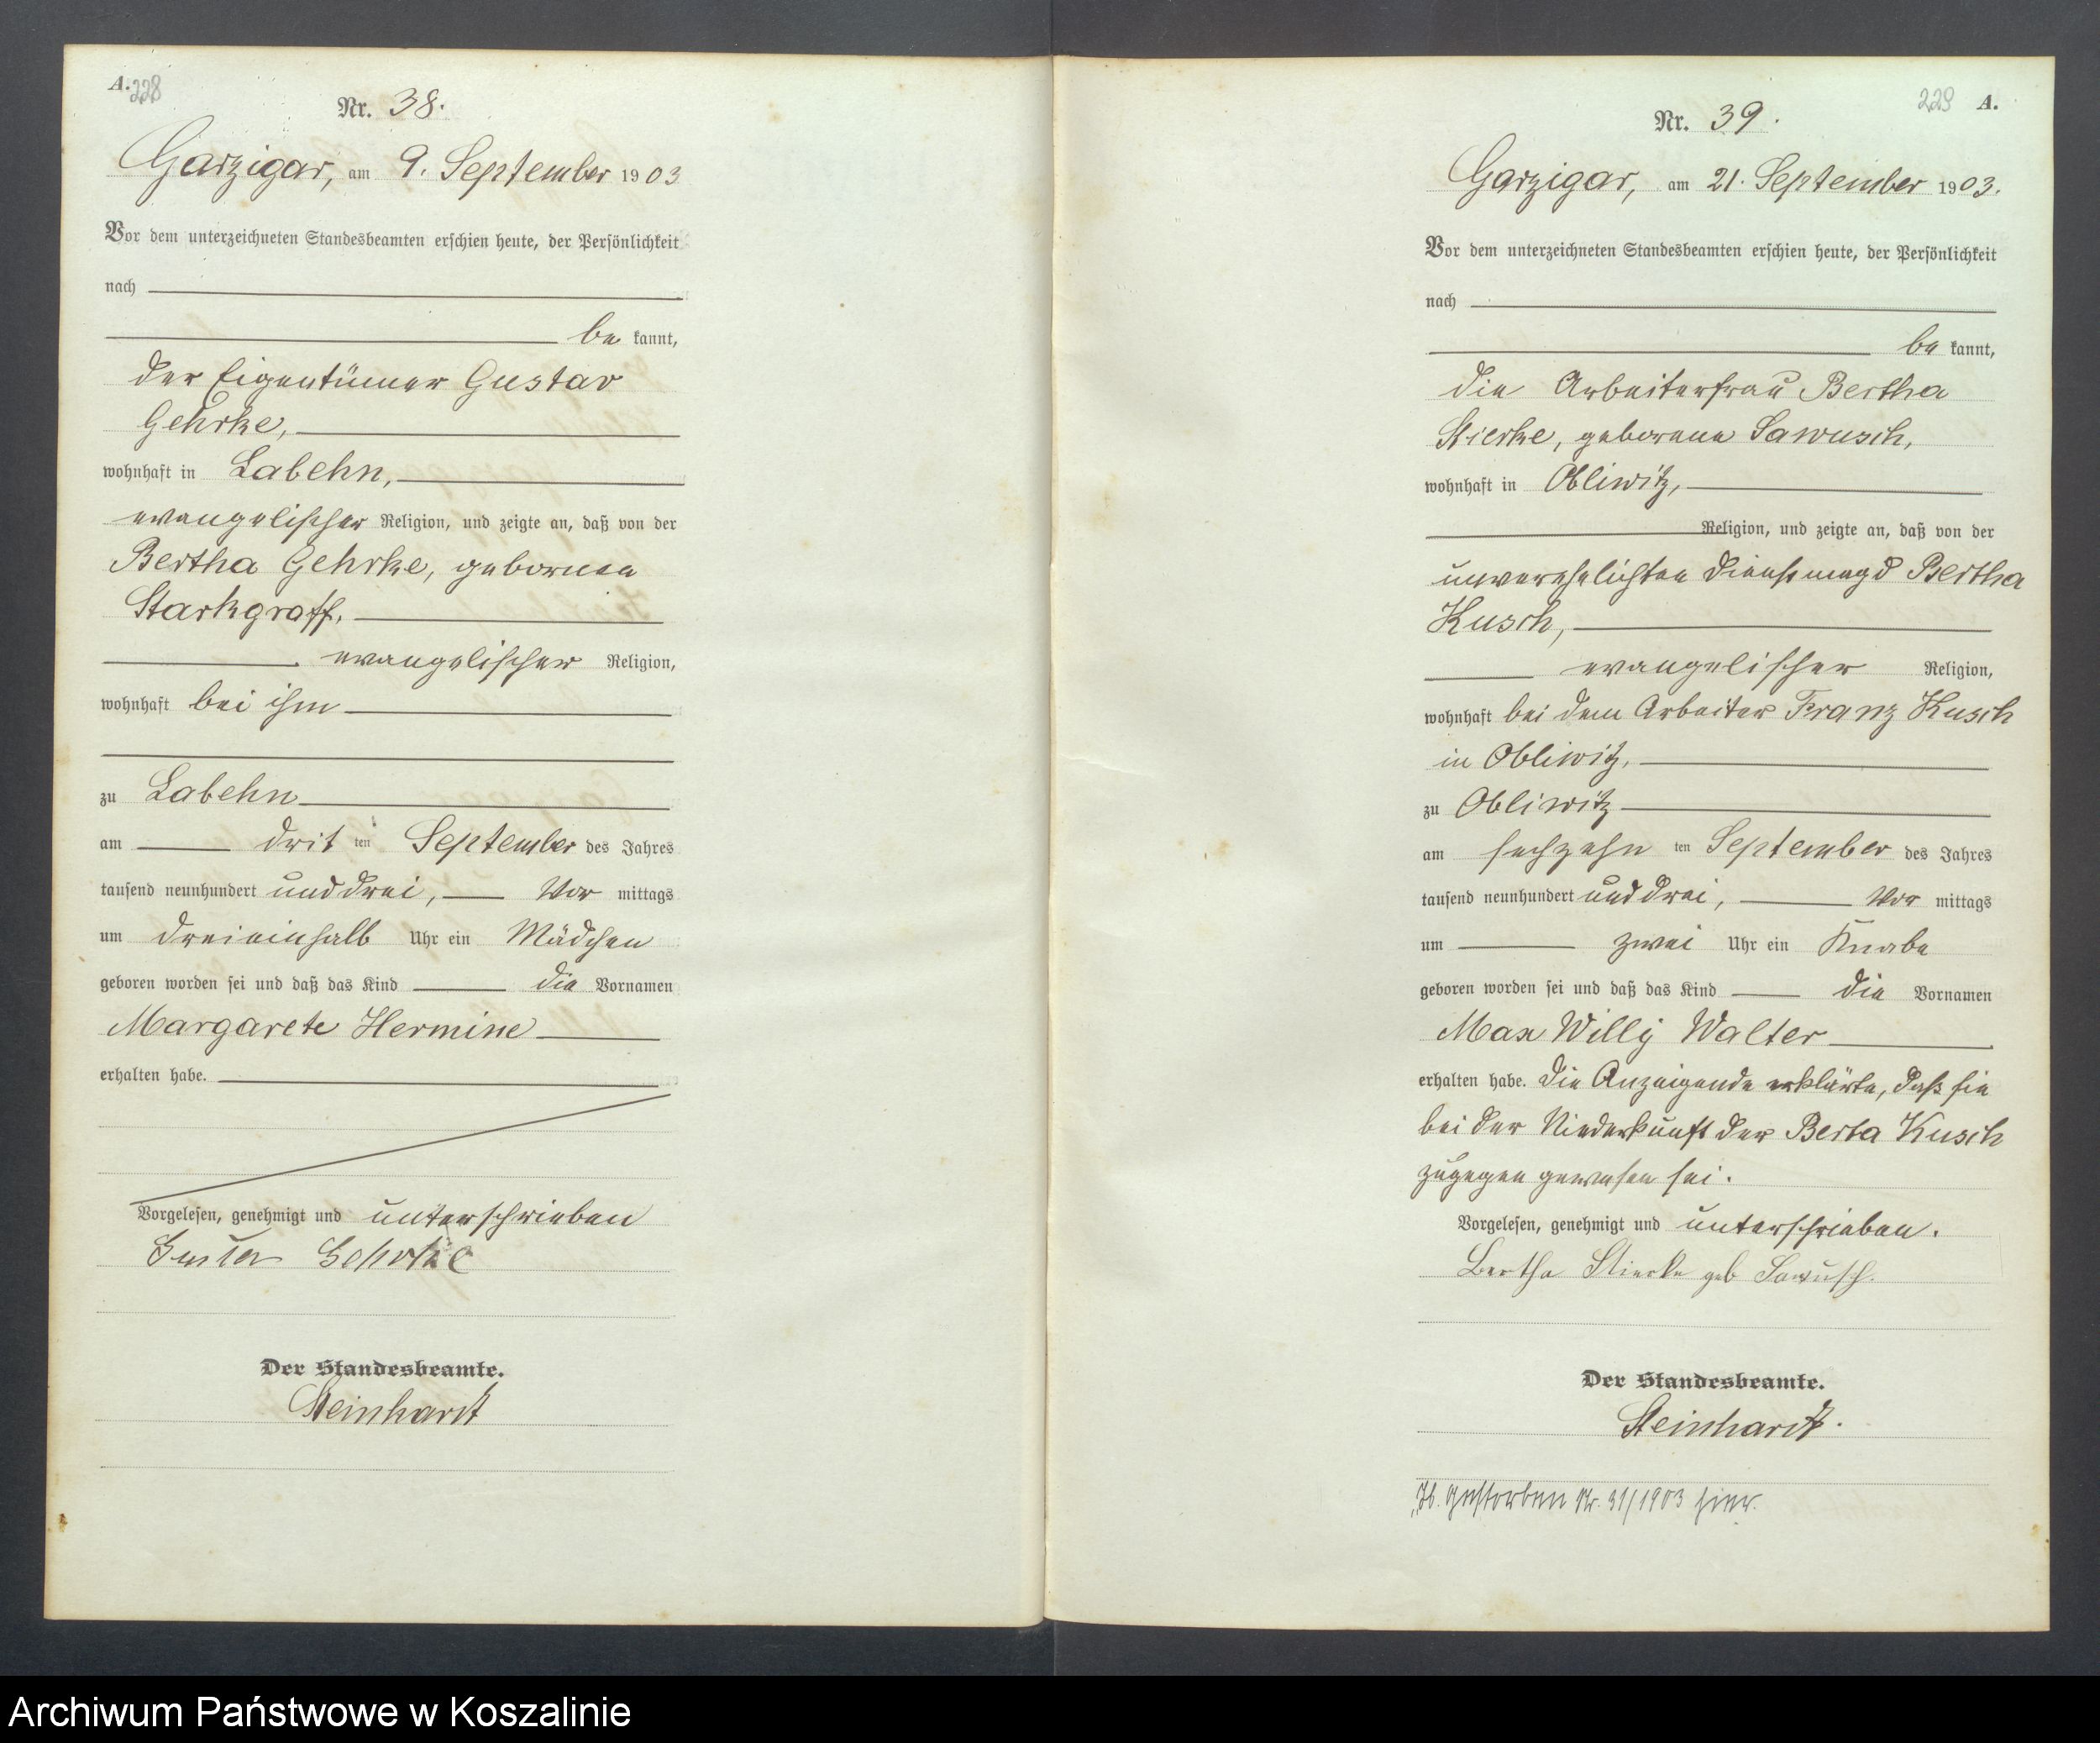 A. 228
Nr. 38.
Garzigar, am 9. September 1903
Vor dem unterzeichneten Standesbeamten erschien heute, der Persönlichkeit
nach
be kannt,
der Eigentümer Gustav
Gehrke,
wohnhaft in Labehn,
evangelischer Religion, und zeigte an, daß von der
Bertha Gehrke, geborenen
Starkgraff,
evangelischer Religion,
wohnhaft bei ihm
zu Labehn
am drit ten September des Jahres
tausend neunhundert und drei, Vor mittags
um dreieinhalb Uhr ein Mädchen
geboren worden sei und daß das Kind die Vornamen
Margarete Hermine
erhalten habe.
Vorgelesen, genehmigt und unterschrieben
Gustav Gehrke
Der Standesbeamte.
Steinhardt
229 A.
Nr. 39.
Garzigar, am 21. September 1903.
Vor dem unterzeichneten Standesbeamten erschien heute, der Persönlichkeit
nach
be kannt,
die Arbeiterfrau Bertha
Stierke, geborene Sawusch,
wohnhaft in Obliwitz,
Religion, und zeigte an, daß von der
unverehelichten Dienstmagd Bertha
Kusch,
evangelischer Religion,
wohnhaft bei dem Arbeiter Franz Kusch
in Obliwitz,
zu Obliwitz
am sechzehn ten September des Jahres
tausend neunhundert und drei, Vor mittags
um zwei Uhr ein Knabe
geboren worden sei und daß das Kind die Vornamen
Max Willy Walter
erhalten habe. Die Anzeigende erklärte, daß sie
bei der Niederkunft der Berta Kusch
zugegen gewesen sei.
Vorgelesen, genehmigt und unterschrieben.
Bertha Stierke geb Sawusch.
Der Standesbeamte.
Steinhardt.
gestorben Nr. 31/1903 hier.
Archiwum Państwowe w Koszalinie